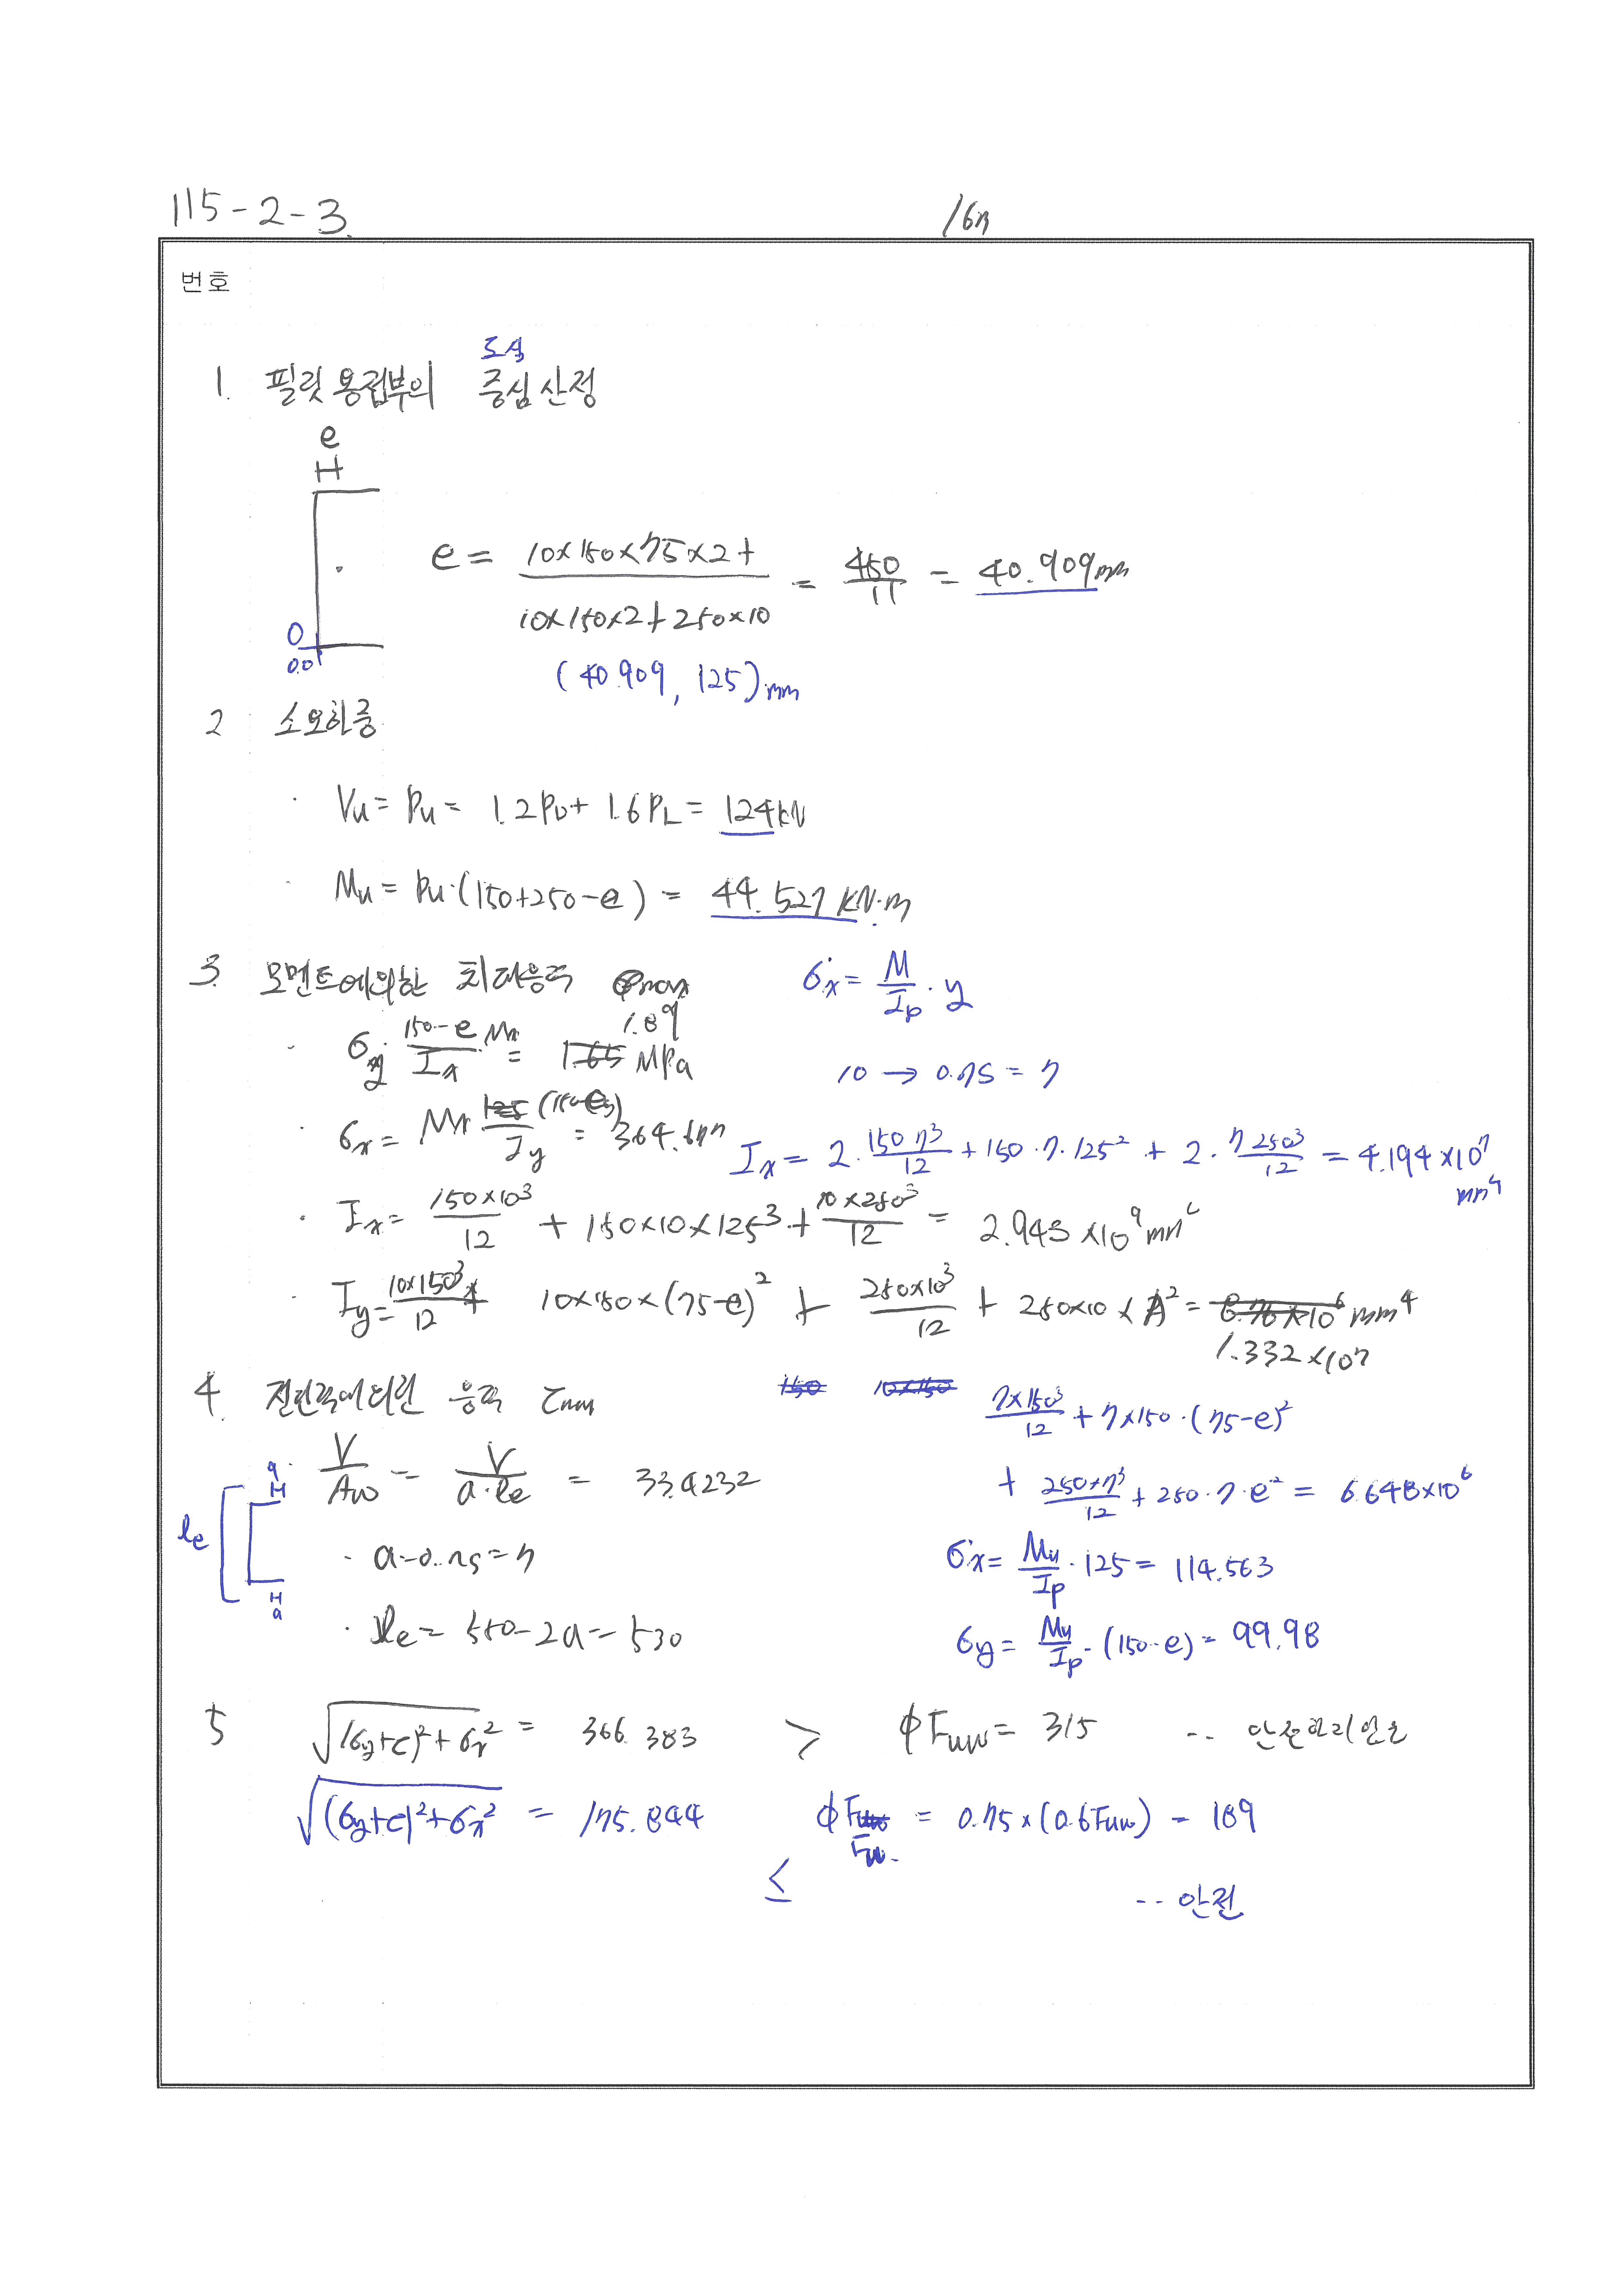 115-2-3.
16m
번호
도심
1. 필릿 용접부의 중심 산정
e
e = (10×150×75×2+) / (10×150×2+250×10) = 450/11 = 40.909mm
O
0.0
(40.909, 125)mm
2 소요하중
· Vu = Pu = 1.2PD + 1.6PL = 124kN
· Mu = Pu·(150+250-e) = 44.527 kN·m
3. 모멘트에 의한 최대응력 σmax
σx = M/Ip · y
1.89
· σy (150-e)/Ix · Mu = 1.65 MPa
10 → 0.7S = 7
· σx = Mu 125 (150-e)/Iy = 364.
Ix = 2·150 7³/12 + 150·7·125² + 2·7 250³/12 = 4.194×10⁷ mm⁴
· Ix = 150×10³/12 + 150×10×125³ + 10×250³/12 = 2.943×10⁹ mm⁴
· Iy = 10×150³/12 + 10×150×(75-e)² + 250×10³/12 + 250×10× ² = 8.76×10⁶ mm⁴
1.332×10⁷
4. 전단력에 의한 응력
150 10×150
7×150³/12 + 7×150·(75-e)²
V/Aw = V/(a·le) = 33.4232
+ 250×7³/12 + 250·7·e² = 6.648×10⁶
a
le
a
· a = 0.7S = 7
σx = Mu/Ip · 125 = 114.563
· le = 550-2a = 530
σy = Mu/Ip · (150-e) = 99.98
5 √((σy+τ)²+σx²) = 366.383 > φFuw = 315 --
√((σy+τ)²+σx²) = 175.844 φFuw = 0.75×(0.6Fuw) = 189
Fw.
≤ -- 안전